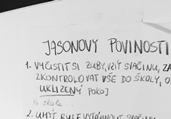 JASONOVY POVINOSTI
1. VYČISTIT SI ZUBY, VZÍT SVAČINU, ZA
ZKONTROLOVAT VŠE DO ŠKOLY, O
UKLIZENÝ POKOJ
2. UMÝT